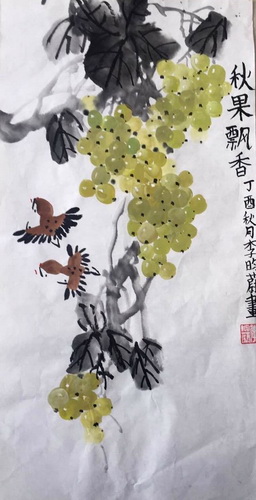 秋果飘香
丁酉秋月李晓蔚画